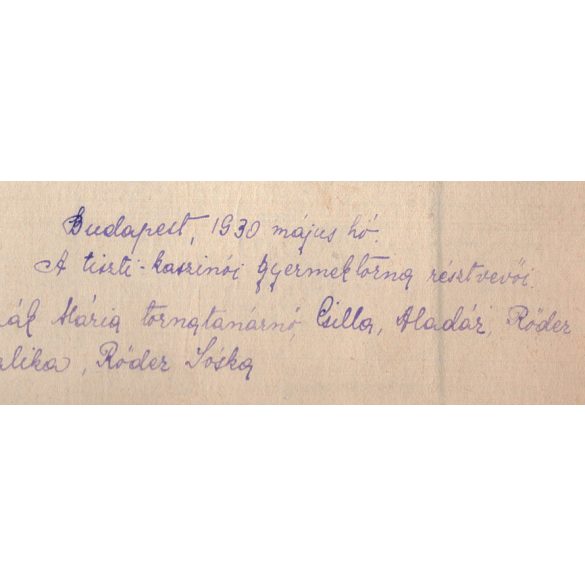 Budapest, 1930 május hó.
A tiszti-kaszinói gyermektorna résztvevői.
ák Mária tornatanárnő, Csilla, Aladár, Röder
alika, Röder Joska